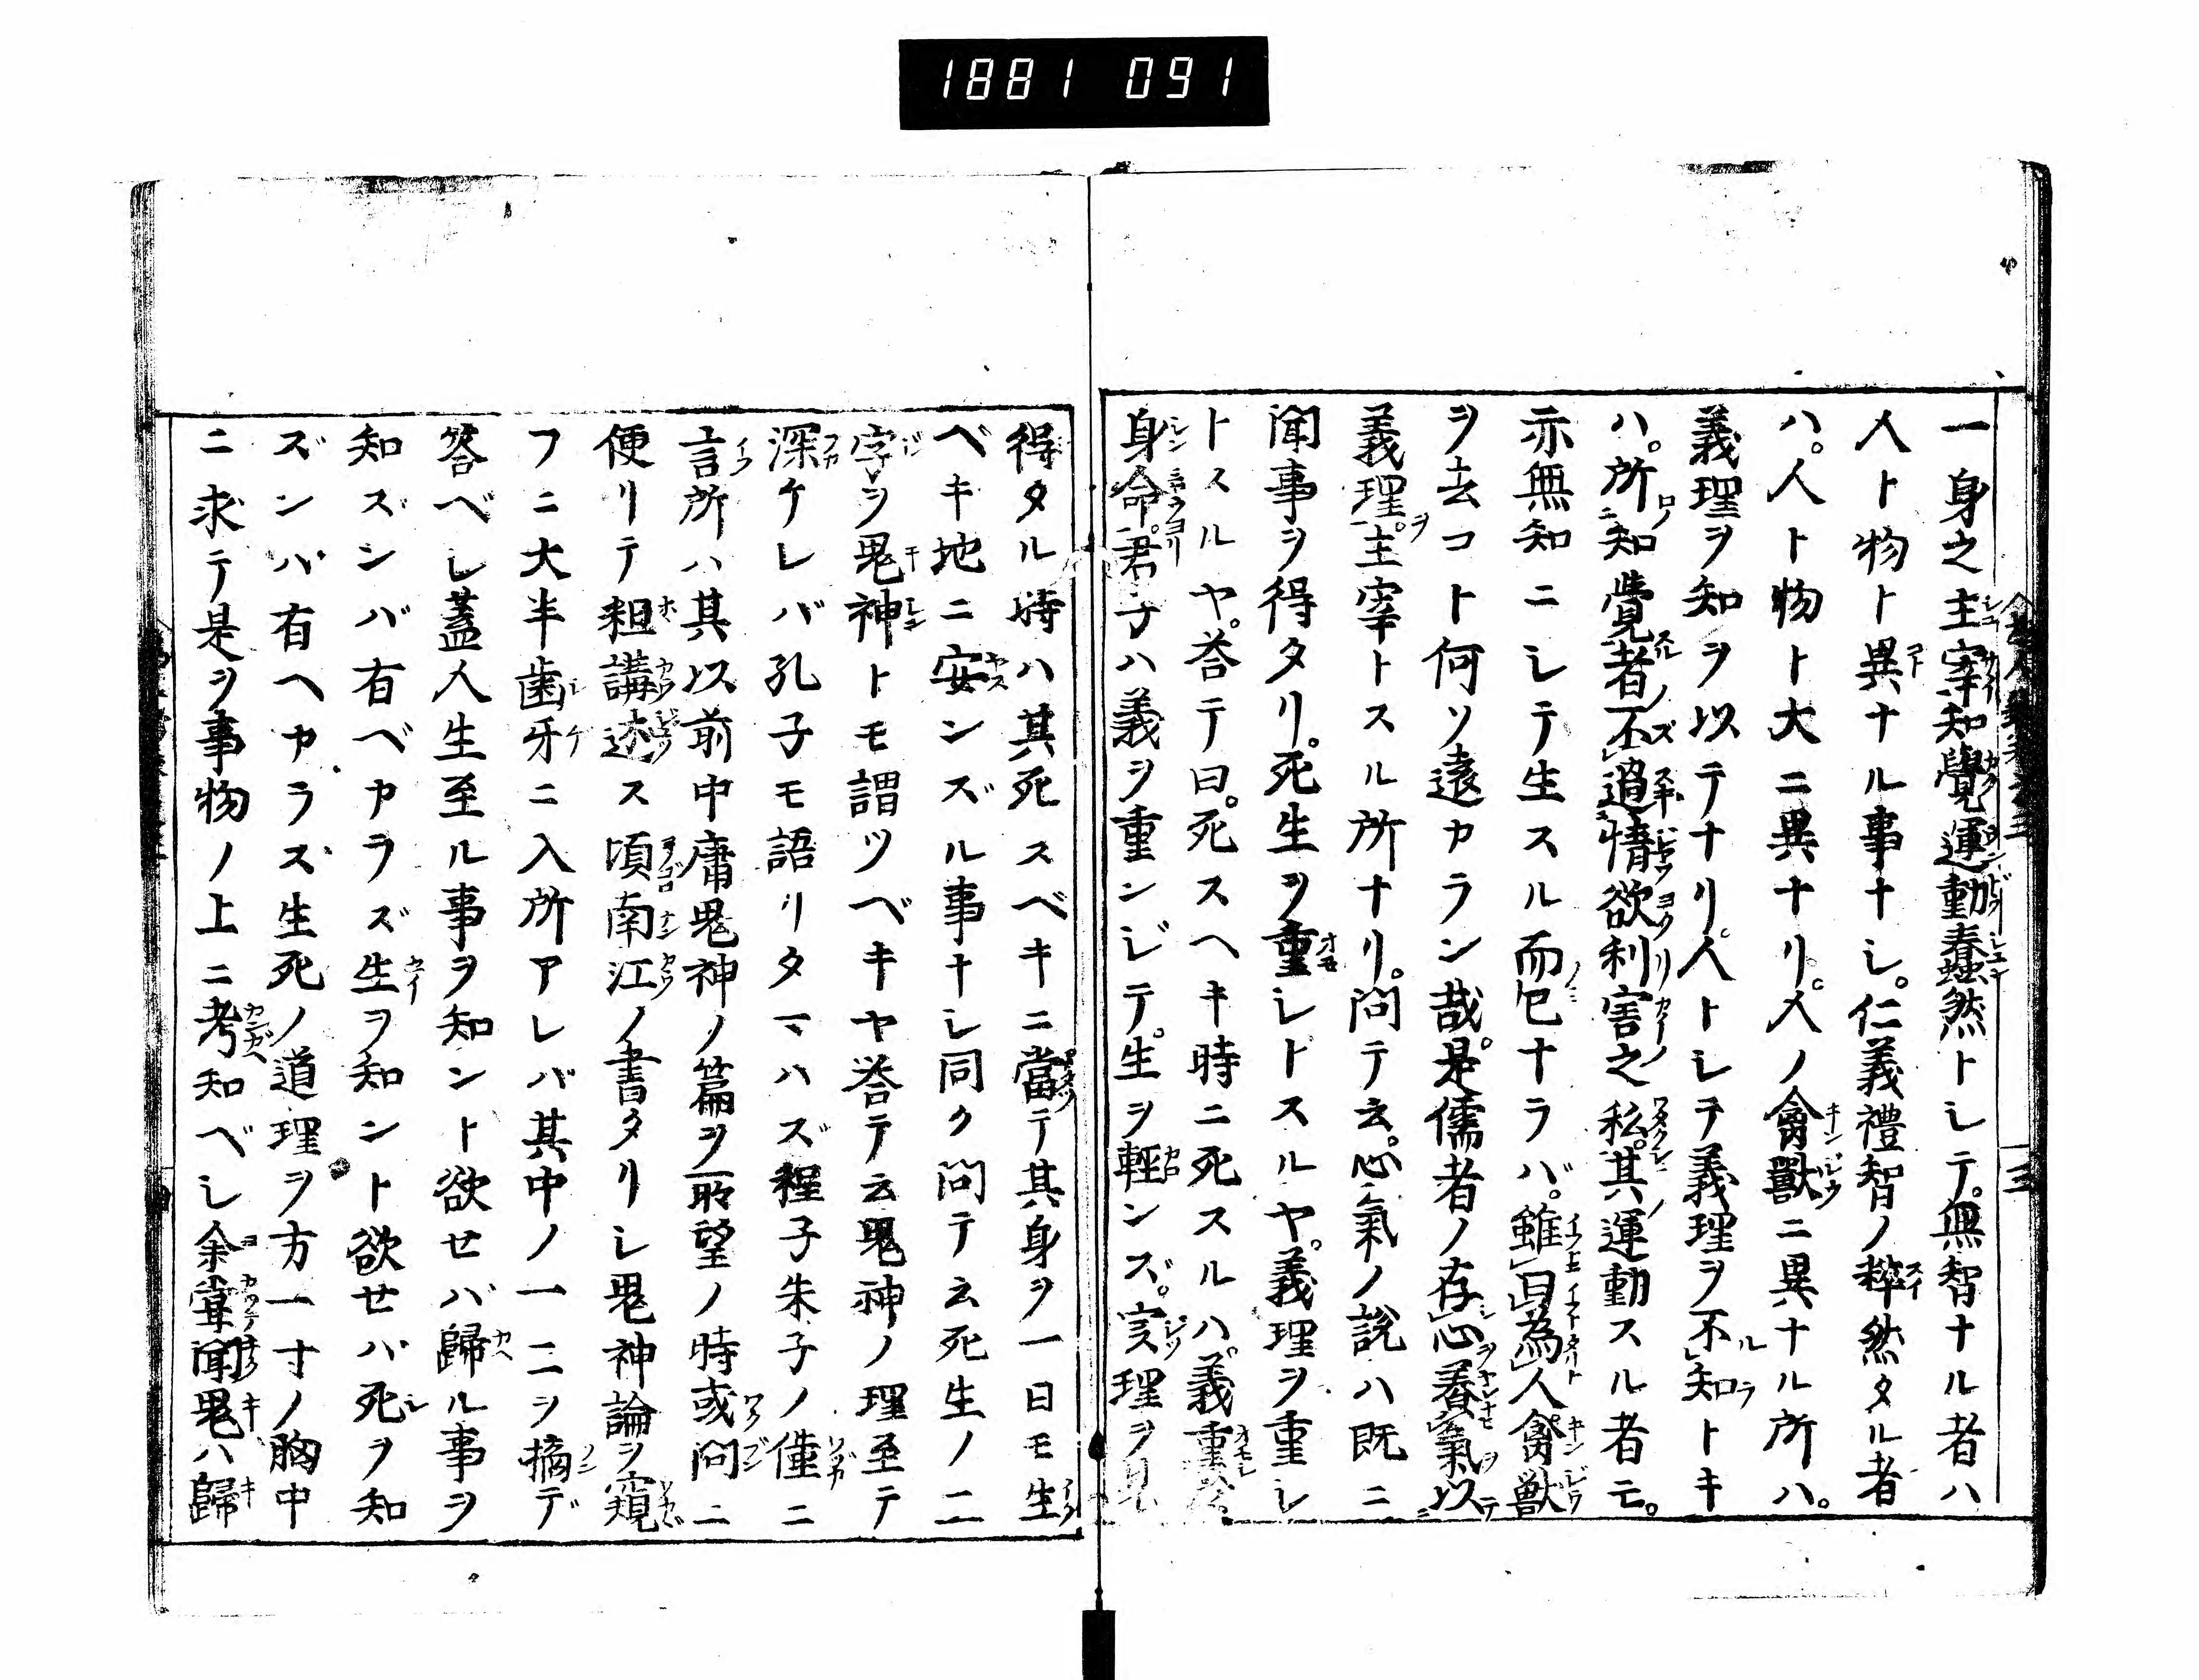 1881 091
一身之主宰知覺運動蠢然トシテ。無智ナル者ハ
人ト物ト異ナル事ナシ。仁義禮智ノ粹然タル者
ハ。人ト物ト大ニ異ナリ。人ノ禽獸ニ異ナル所ハ。
義理ヲ知ヲ以テナリ。人トシテ義理ヲ不知トキ
ハ。所知覺者不過情欲利害之私。其運動スル者モ。
亦無知ニシテ生スル而已ナラバ。雖曰為人禽獸
ヲ去コト何ソ遠カラン哉。是儒者ノ存心養氣以
義理主宰トスル所ナリ。問テ云。心氣ノ說ハ既ニ
聞事ヲ得タリ。死生ヲ重シトスルヤ。義理ヲ重シ
トスルヤ。荅テ曰。死スヘキ時ニ死スルハ。義重於
身命。君子ハ義ヲ重ンジテ。生ヲ輕ンズ。実理ヲ
得タル時ハ其死スベキニ當テ其身ヲ一日モ生
ベキ地ニ安ンズル事ナシ同ク問テ云死生ノ二
字ヲ鬼神トモ謂ツベキヤ荅テ云鬼神ノ理至テ
深ケレバ孔子モ語リタマハズ程子朱子ノ僅ニ
言所ハ其以前中庸鬼神ノ篇ヲ聆望ノ時或問ニ
便リテ粗講述ス頃南江ノ書タリシ鬼神論ヲ窺
フニ大半歯牙ニ入所アレバ其中ノ一二ヲ摘デ
答ベシ蓋人生至ル事ヲ知ント欲セバ歸ル事ヲ
知ズンバ有ベカラズ生ヲ知ント欲セバ死ヲ知
ズンバ有ヘカラス生死ノ道理ヲ方一寸ノ胸中
ニ求テ是ヲ事物ノ上ニ考知ベシ余嘗聞鬼ハ歸